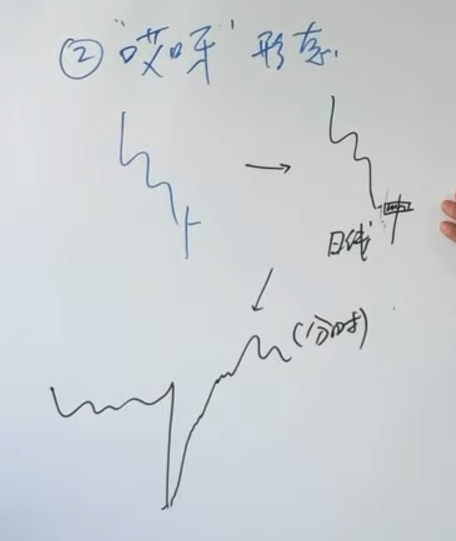 ② "哎呀" 形态.
日线
(分时)